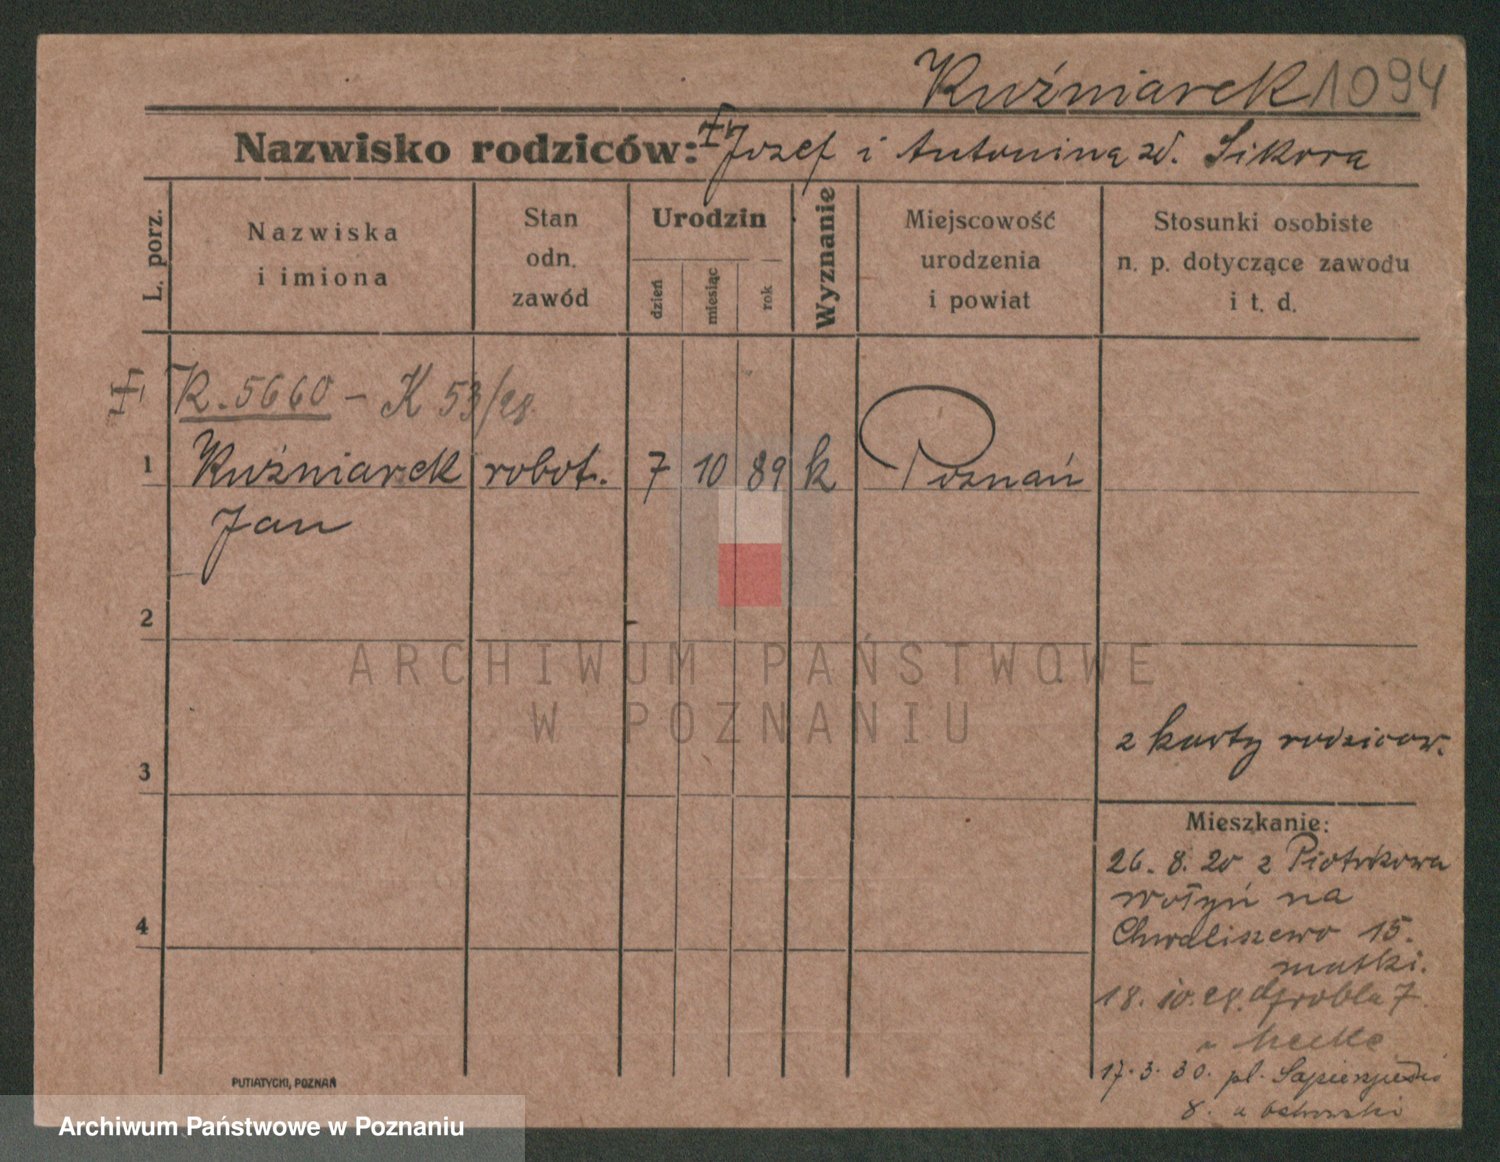 Kuźniarek 1094
Nazwisko rodziców: Józef i Antonina zd. Sikora
L. porz.
Nazwiska
i imiona
Stan
odn.
zawód
Urodzin
dzień
miesiąc
rok
Wyznanie
Miejscowość
urodzenia
i powiat
Stosunki osobiste
n. p. dotyczące zawodu
i t. d.
R. 5660 - K 53/28
1 Kuźniarek robot. 7 10 89 k Poznań
Jan
2
ARCHIWUM PAŃSTWOWE
W POZNANIU
z karty rodziców.
3
Mieszkanie:
26. 8. 20 z Piotrkowa
wołyń na
Chwaliszewo 15.
matki.
4
18. 10. 28. Grobla 7.
u
17. 3. 30. pl. Sapieżyński
8. u
PUTIATYCKI, POZNAŃ
Archiwum Państwowe w Poznaniu